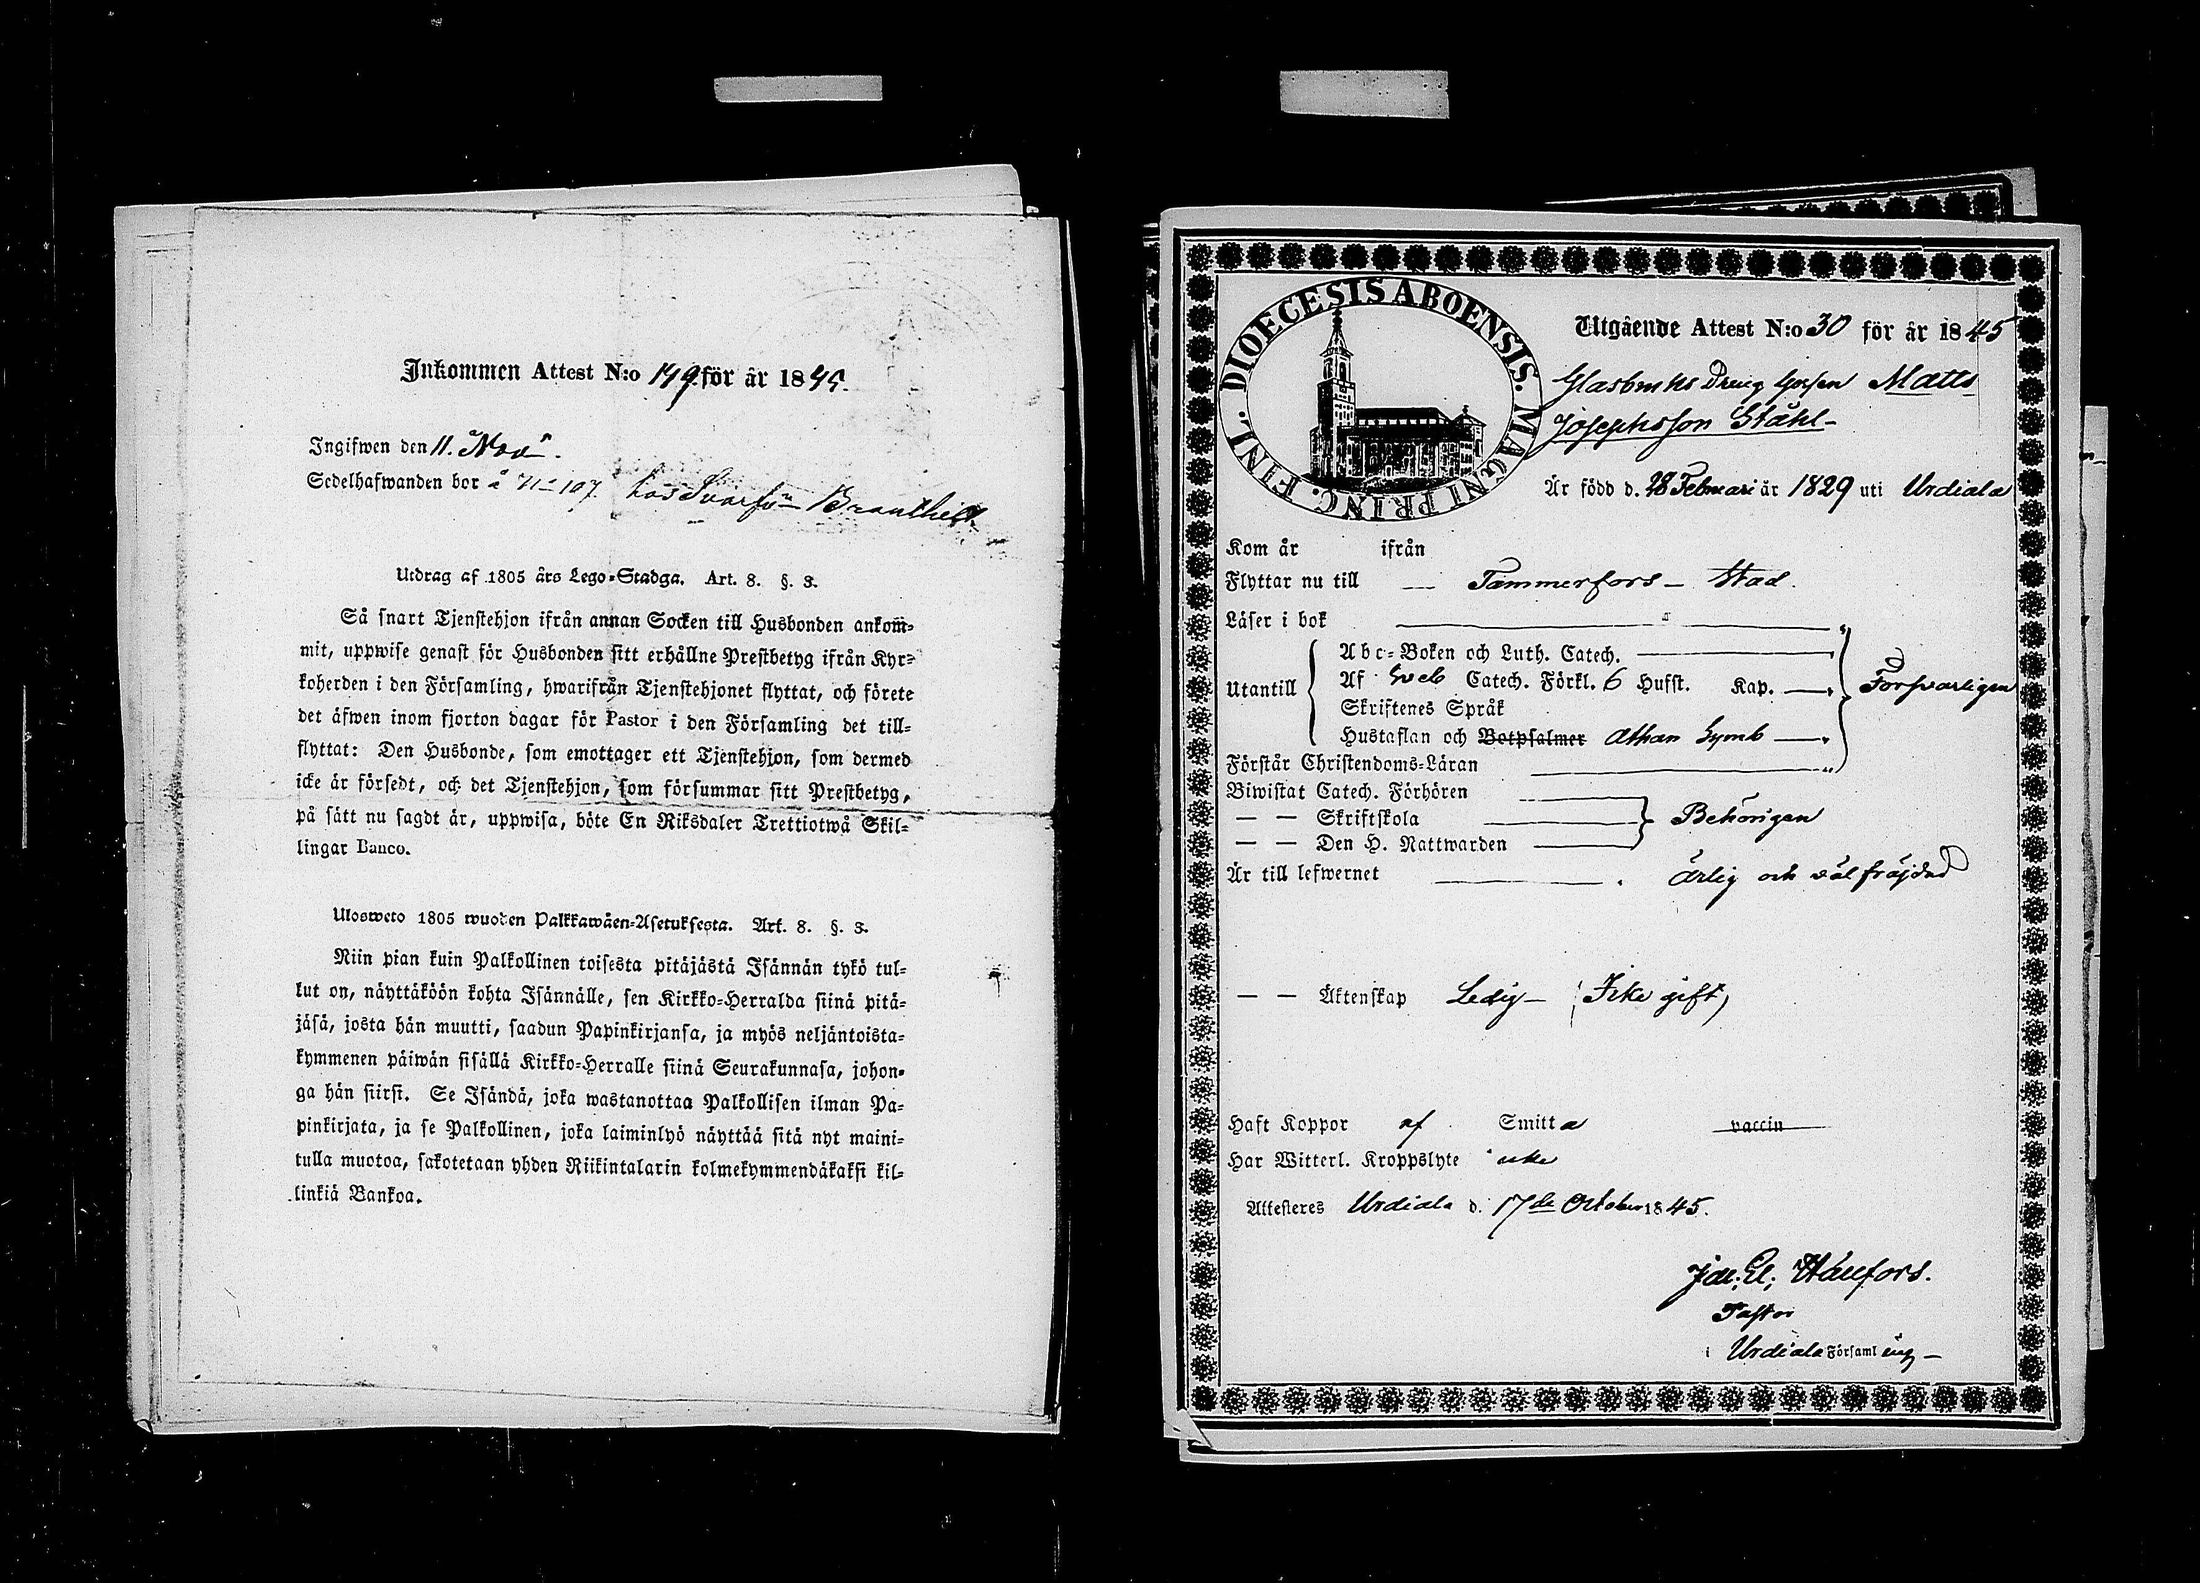 Inkommen Attest N:o 149. för år 1845.
Ingifwen den 11. Nov.
Sedelhafwanden bor å N 107. hos Svarfv.
Utdrag af 1805 års Lego-Stadga. Art. 8. §. 3.
Så snart Tjenstehjon ifrån annan Socken till Husbonden ankom̃-
mit, uppwise genast för Husbonden sitt erhållne Prestbetyg ifrån Kyr-
koherden i den Församling, hwarifrån Tjenstehjonet flyttat, och förete
det äfwen inom fjorton dagar för Pastor i den Församling det till-
flyttat: Den Husbonde, som emottager ett Tjenstehjon, som dermed
icke är försedt, och det Tjenstehjon, som försummar sitt Prestbetyg,
på sätt nu sagdt är, uppwisa, böte En Riksdaler Trettiotwå Skil-
lingar Banco.
Ulosweto 1805 wuoden Palkkawäen-Asetuksesta. Art. 8. §. 3.
Niin pian kuin Palkollinen toisesta pitäjästä Isännän tykö tul-
lut on, näyttäköön kohta Isännälle, sen Kirkko-Herralda siinä pitä-
jäsä, josta hän muutti, saadun Papinkirjansa, ja myös neljäntoista-
kymmenen päiwän sisällä Kirkko-Herralle siinä Seurakunnasa, johon-
ga hän siirsi. Se Isändä, joka wastanottaa Palkollisen ilman Pa-
pinkirjata, ja se Palkollinen, joka laiminlyö näyttää sitä nyt maini-
tulla muotoa, sakotetaan yhden Riikintalarin kolmekymmendäkaksi kil-
linkiä Bankoa.
DIOECESIS ABOENSIS. MAGNI PRINC. FINL.
Utgående Attest N:o 30 för år 1845
Glasbruks Dreng Gossen Matts
Josephsson Ståhl
Är född d. 28 Februari år 1829 uti Urdiala
Kom år ifrån
Flyttar nu till — Tammerfors — Stad.
Läser i bok
Utantill
Abc-Boken och Luth. Catech.
Af Sveb Catech. Förkl. 6 Hufst. Kap. —
Skriftenes Språk
Hustaflan och Botpsalmer Athan Symb —
Försvarligen
Förstår Christendoms-Läran
Biwistat Catech. Förhören
— — Skriftskola
— — Den H. Nattwarden
Behörigen
Är till lefwernet . ärlig och väl fräjdad
— — Äktenskap Ledig — (Icke gift)
Haft Koppor af Smitta vaccin
Har Witterl. Kroppslyte icke
Attesteres Urdiala d. 17de October 1845.
Pastor
i Urdiala Församling —